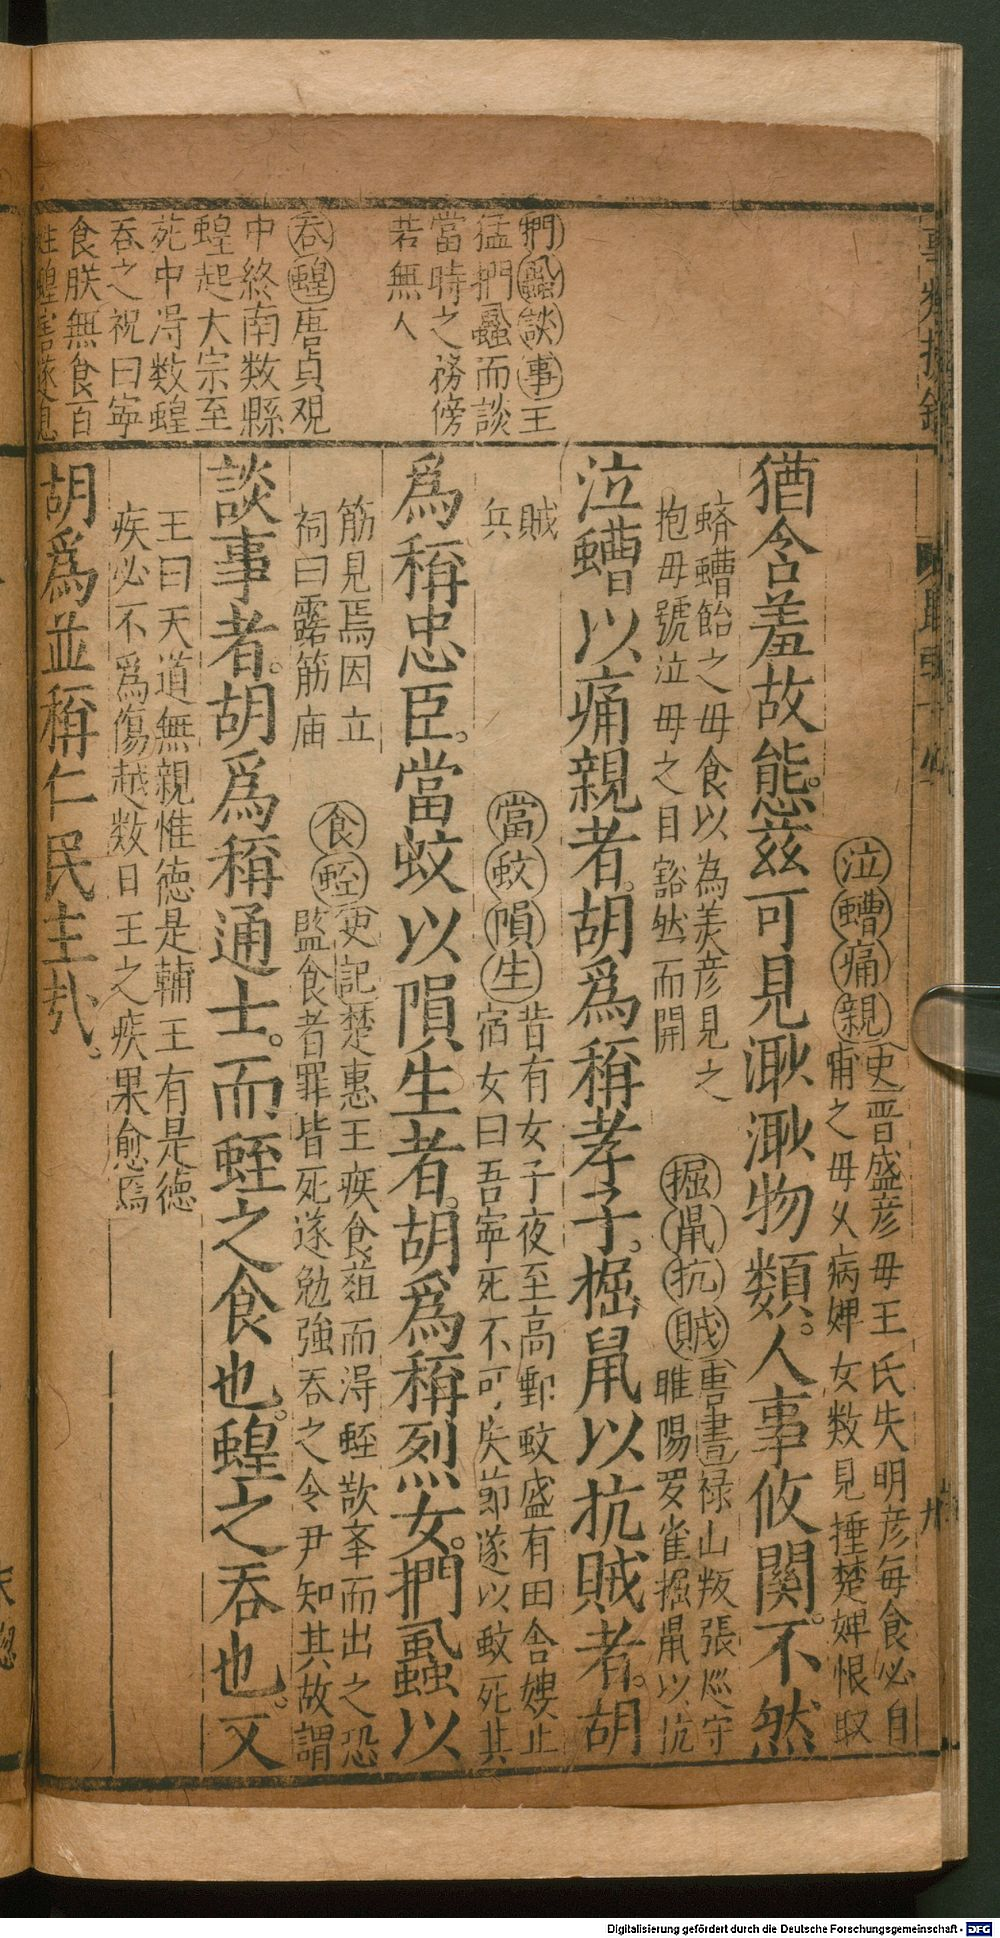 捫蝨談事王
猛捫蝨而談
當時之務傍
若無人
吞蝗唐貞观
中終南数縣
蝗起大宗至
苑中淂数蝗
吞之祝曰寜
食朕無食百
姓蝗害遂息
泣螬痛親史晋盛彦毋王氏失明彦每食必自
甫之毋乆病婢女数見捶楚婢恨取
猶含羞故態。兹可見㴿㴿物類。人事攸関。不然
蠐螬飴之毋食以為羙彦見之
抱毋號泣毋之目豁然而開
掘鼠抗賊唐書禄山叛張廵守
睢陽罗雀掘鼠以抗
泣螬以痛親者。胡爲稱孝子。掘鼠以抗賊者。胡
賊
兵
當蚊隕生昔有女子夜至高郵蚊盛有田舍嫂止
宿女曰吾寜死不可失節遂以蚊死其
爲稱忠臣。當蚊以隕生者。胡爲稱烈女。捫蝨以
筋見焉因立
祠曰露筋庙
食蛭史記楚惠王疾食葅而淂蛭欲奉而出之恐
監食者罪皆死遂勉強吞之令尹知其故謂
談事者。胡爲稱通士。而蛭之食也。蝗之吞也。又
王曰天道無親惟德是輔王有是德
疾必不爲傷越数日王之疾果愈焉
胡爲並稱仁民主㢤。
Digitalisierung gefördert durch die Deutsche Forschungsgemeinschaft - DFG